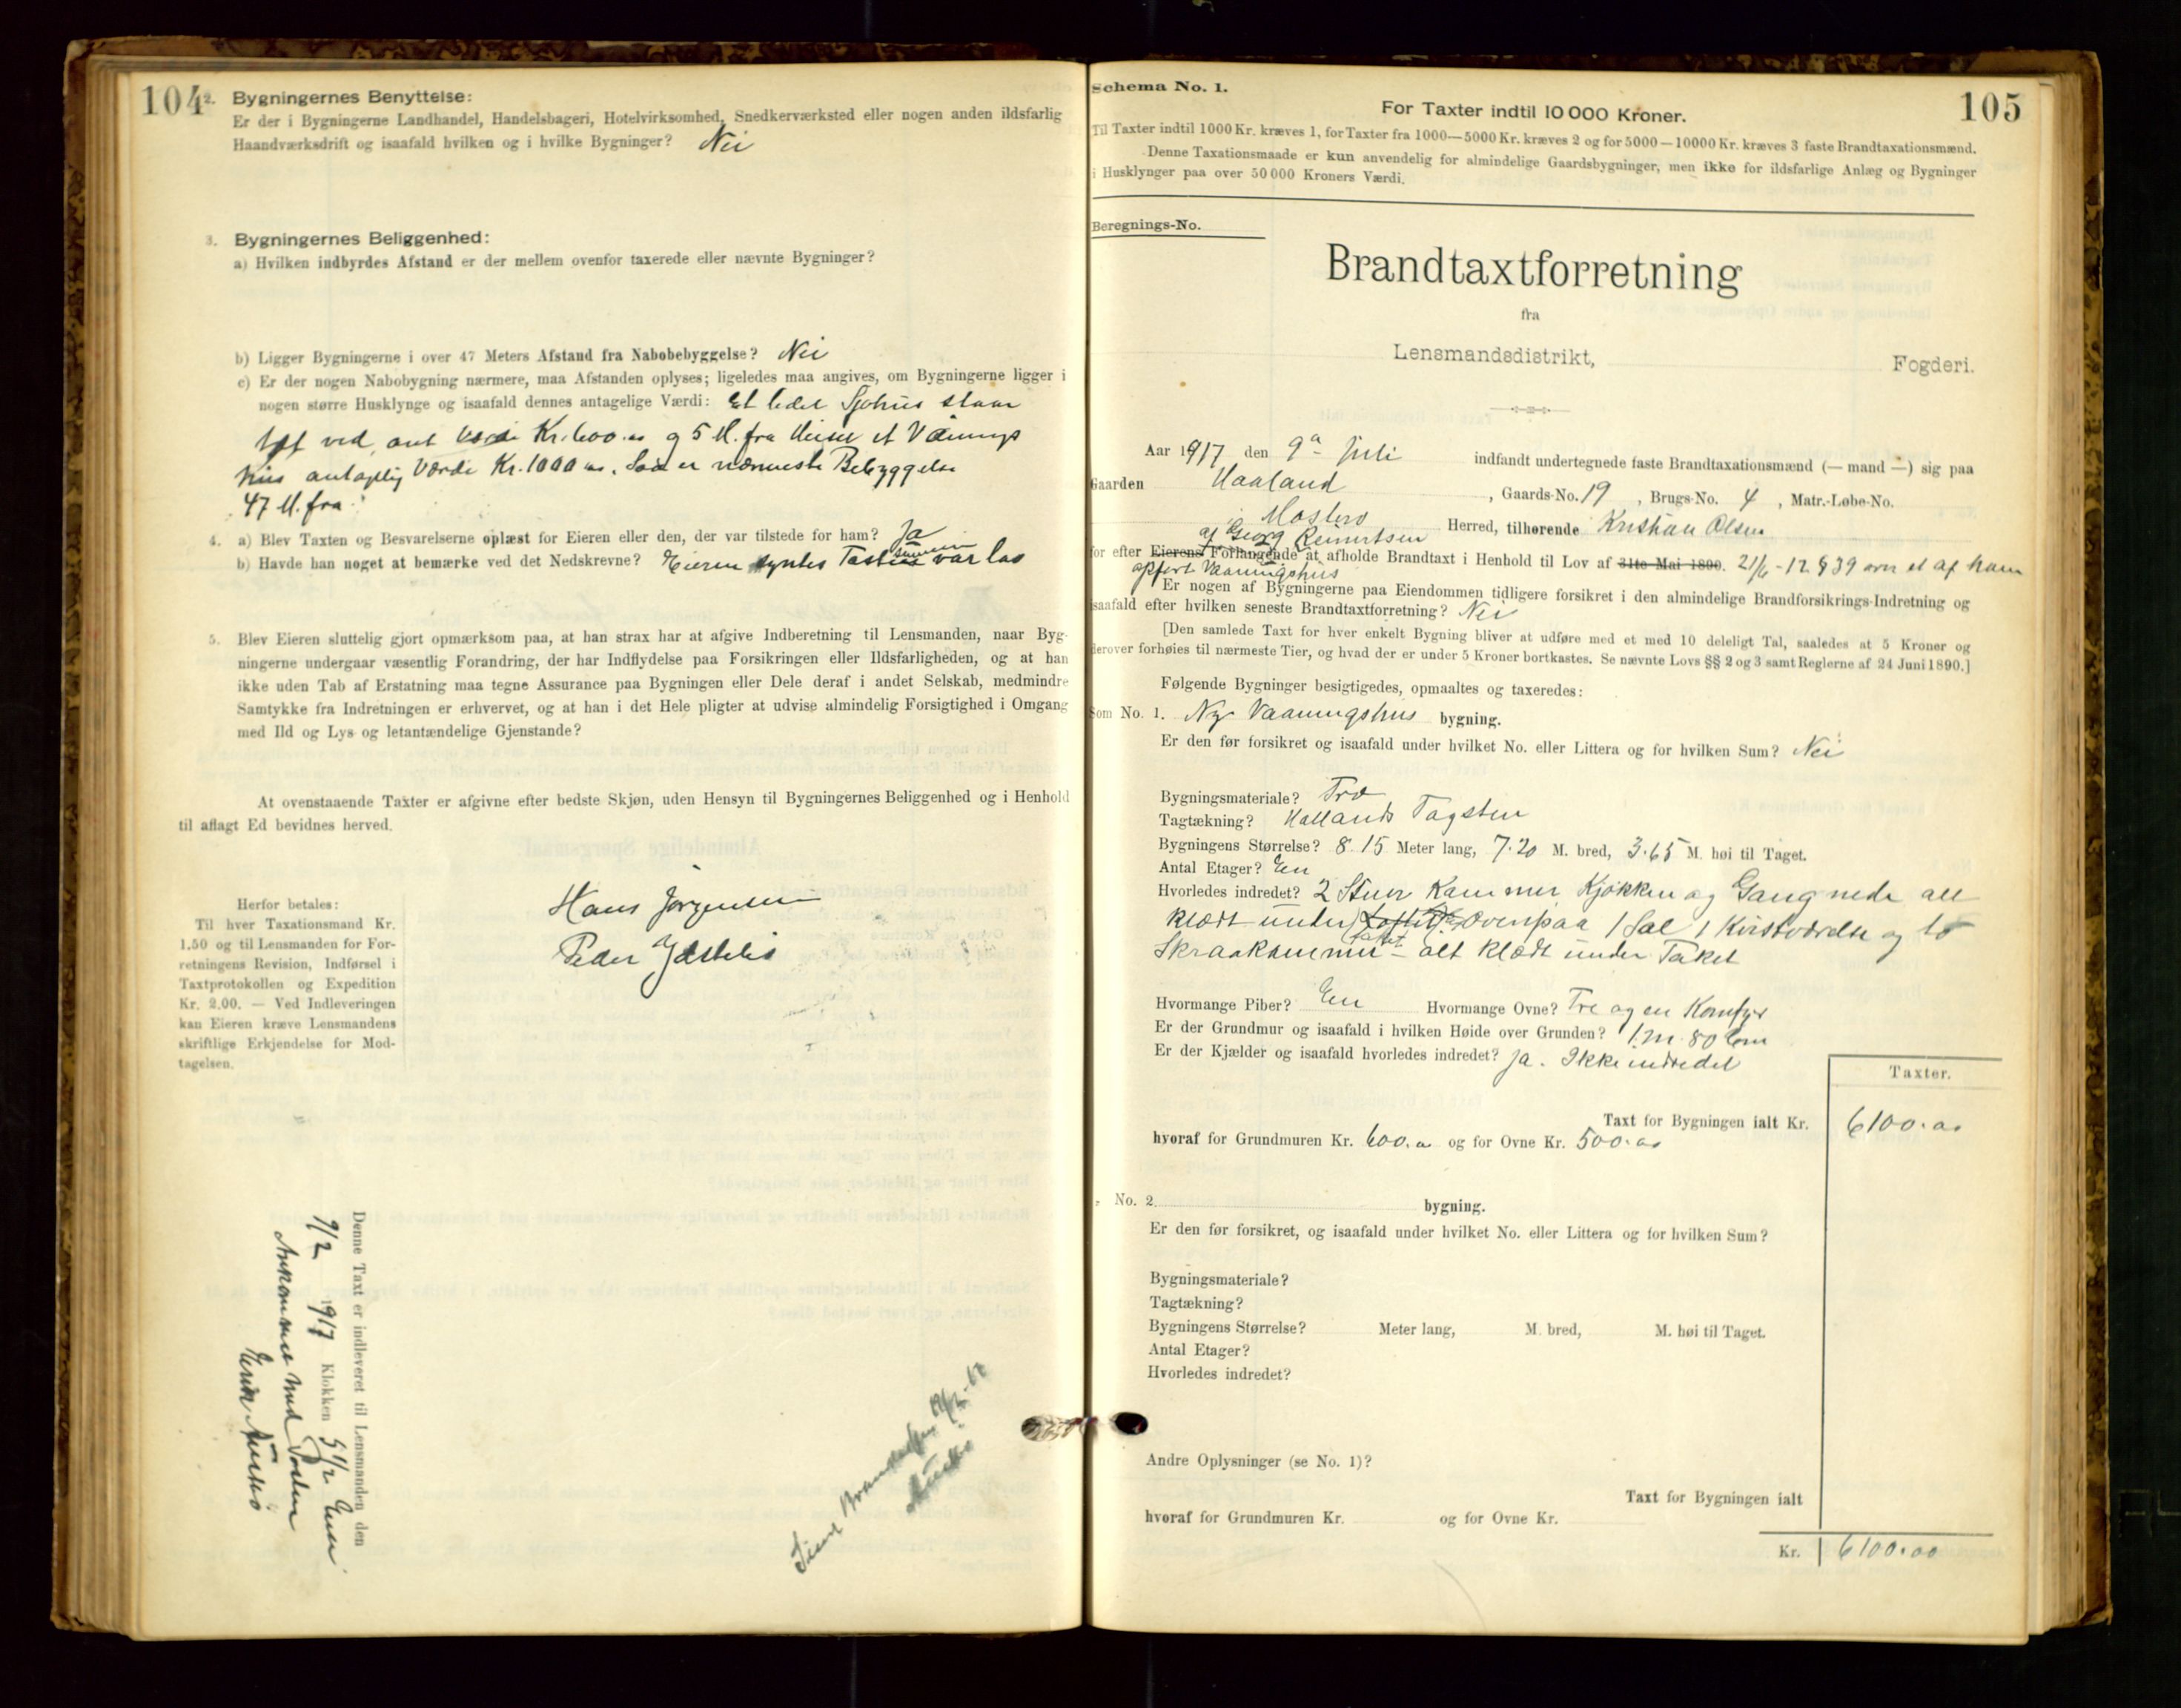 104
2. Bygningernes Benyttelse:
Er der i Bygningerne Landhandel, Handelsbageri, Hotelvirksomhed, Snedkerværksted eller nogen anden ildsfarlig
Haandværksdrift og isaafald hvilken og i hvilke Bygninger? Nei
3. Bygningernes Beliggenhed:
a) Hvilken indbyrdes Afstand er der mellem ovenfor taxerede eller nævnte Bygninger?
b) Ligger Bygningerne i over 47 Meters Afstand fra Nabobebyggelse? Nei
c) Er der nogen Nabobygning nærmere, maa Afstanden oplyses; ligeledes maa angives, om Bygningerne ligger i
nogen større Husklynge og isaafald dennes antagelige Værdi: Et lidet Sjøhus staar
tæt ved, ant Værdi Kr. 600.00 og 5 M. fra Huset et Vaanings
hus antaglig Værdi Kr. 1000.00. Saa er nærmeste Bebyggelse
47 M. fra.
4. a) Blev Taxten og Besvarelserne oplæst for Eieren eller den, der var tilstede for ham? Ja
b) Havde han noget at bemærke ved det Nedskrevne? Eieren syntes summen var lav
5. Blev Eieren sluttelig gjort opmærksom paa, at han strax har at afgive Indberetning til Lensmanden, naar Byg-
ningerne undergaar væsentlig Forandring, der har Indflydelse paa Forsikringen eller Ildsfarligheden, og at han
ikke uden Tab af Erstatning maa tegne Assurance paa Bygningen eller Dele deraf i andet Selskab, medmindre
Samtykke fra Indretningen er erhvervet, og at han i det Hele pligter at udvise almindelig Forsigtighed i Omgang
med Ild og Lys og letantændelige Gjenstande?
At ovenstaaende Taxter er afgivne efter bedste Skjøn, uden Hensyn til Bygningernes Beliggenhed og i Henhold
til aflagt Ed bevidnes herved.
Hans Jørgensen
Peder
Herfor betales:
Til hver Taxationsmand Kr.
1.50 og til Lensmanden for For-
retningens Revision, Indførsel i
Taxtprotokollen og Expedition
Kr. 2.00. — Ved Indleveringen
kan Eieren kræve Lensmandens
skriftlige Erkjendelse for Mod-
tagelsen.
Denne Taxt er indleveret til Lensmanden den
9/2 1917 Klokken 5 1/2 Em
Ankommet med Posten
Schema No. 1.
105
For Taxter indtil 10 000 Kroner.
Til Taxter indtil 1000 Kr. kræves 1, for Taxter fra 1000—5000 Kr. kræves 2 og for 5000—10000 Kr. kræves 3 faste Brandtaxationsmænd.
Denne Taxationsmaade er kun anvendelig for almindelige Gaardsbygninger, men ikke for ildsfarlige Anlæg og Bygninger
i Husklynger paa over 50 000 Kroners Værdi.
Beregnings-No.
Brandtaxtforretning
fra
Lensmandsdistrikt, Fogderi.
Aar 1917 den 9a Juli indfandt undertegnede faste Brandtaxationsmænd (— mand —) sig paa
Gaarden Haaland, Gaards-No. 19, Brugs-No. 4, Matr.-Løbe-No.
i Mosterø Herred, tilhørende Kristian Olsen
af Georg Reinertsen
for efter Eierens Forlangende at afholde Brandtaxt i Henhold til Lov af 31te Mai 1890. 21/6-12 § 39 over et af ham
opført Vaaningshus
Er nogen af Bygningerne paa Eiendommen tidligere forsikret i den almindelige Brandforsikrings-Indretning og
isaafald efter hvilken seneste Brandtaxtforretning? Nei
[Den samlede Taxt for hver enkelt Bygning bliver at udføre med et med 10 deleligt Tal, saaledes at 5 Kroner og
derover forhøies til nærmeste Tier, og hvad der er under 5 Kroner bortkastes. Se nævnte Lovs §§ 2 og 3 samt Reglerne af 24 Juni 1890.]
Følgende Bygninger besigtigedes, opmaaltes og taxeredes:
Som No. 1. Ny Vaaningshus bygning.
Er den før forsikret og isaafald under hvilket No. eller Littera og for hvilken Sum? Nei
Bygningsmateriale? Træ
Tagtækning? Hollands Tagsten
Bygningens Størrelse? 8.15 Meter lang, 7.20 M. bred, 3.65 M. høi til Taget.
Antal Etager? En
Hvorledes indredet? 2 Stuer Kammer Kjøkken og Gang nede alt
klædt under Loftet Ovenpaa 1 Sal 1 Kvistværelse og to
Skraakammer – alt klædt under Taket
Hvormange Piber? En Hvormange Ovne? Tre og en Komfyr
Er der Grundmur og isaafald i hvilken Høide over Grunden? 1 m 80 Cm
Er der Kjælder og isaafald hvorledes indredet? Ja. Ikke indredet
Taxter.
Taxt for Bygningen ialt Kr. 6100.00
hvoraf for Grundmuren Kr. 600.00 og for Ovne Kr. 500.00
- No. 2 bygning.
Er den før forsikret, og isaafald under hvilket No. eller Littera og for hvilken Sum?
Bygningsmateriale?
Tagtækning?
Bygningens Størrelse? Meter lang, M. bred, M. høi til Taget.
Antal Etager?
Hvorledes indredet?
Andre Oplysninger (se No. 1)?
Taxt for Bygningen ialt
hvoraf for Grundmuren Kr. og for Ovne Kr.
Kr. 6100.00